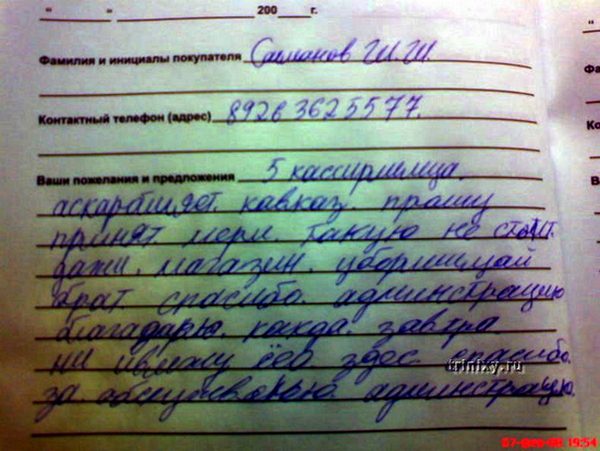 " " 200 г.
Фамилия и инициалы покупателя Сасманов Ш.Ш.
Контактный телефон (адрес) 89263625577.
Ваши пожелания и предложения 5 кассиршмица.
аскарбляет. кавказ. прашу
принят. мери. такую не стоит.
дажи. магазин. уборшицай
брат спасибо. админстрацию
благадарю. какда. завтра
ни увижу ёво здес. спасибо.
за абслуживанью админстрацую.
trinixy.ru
19:54
"
Фа
Ко
В